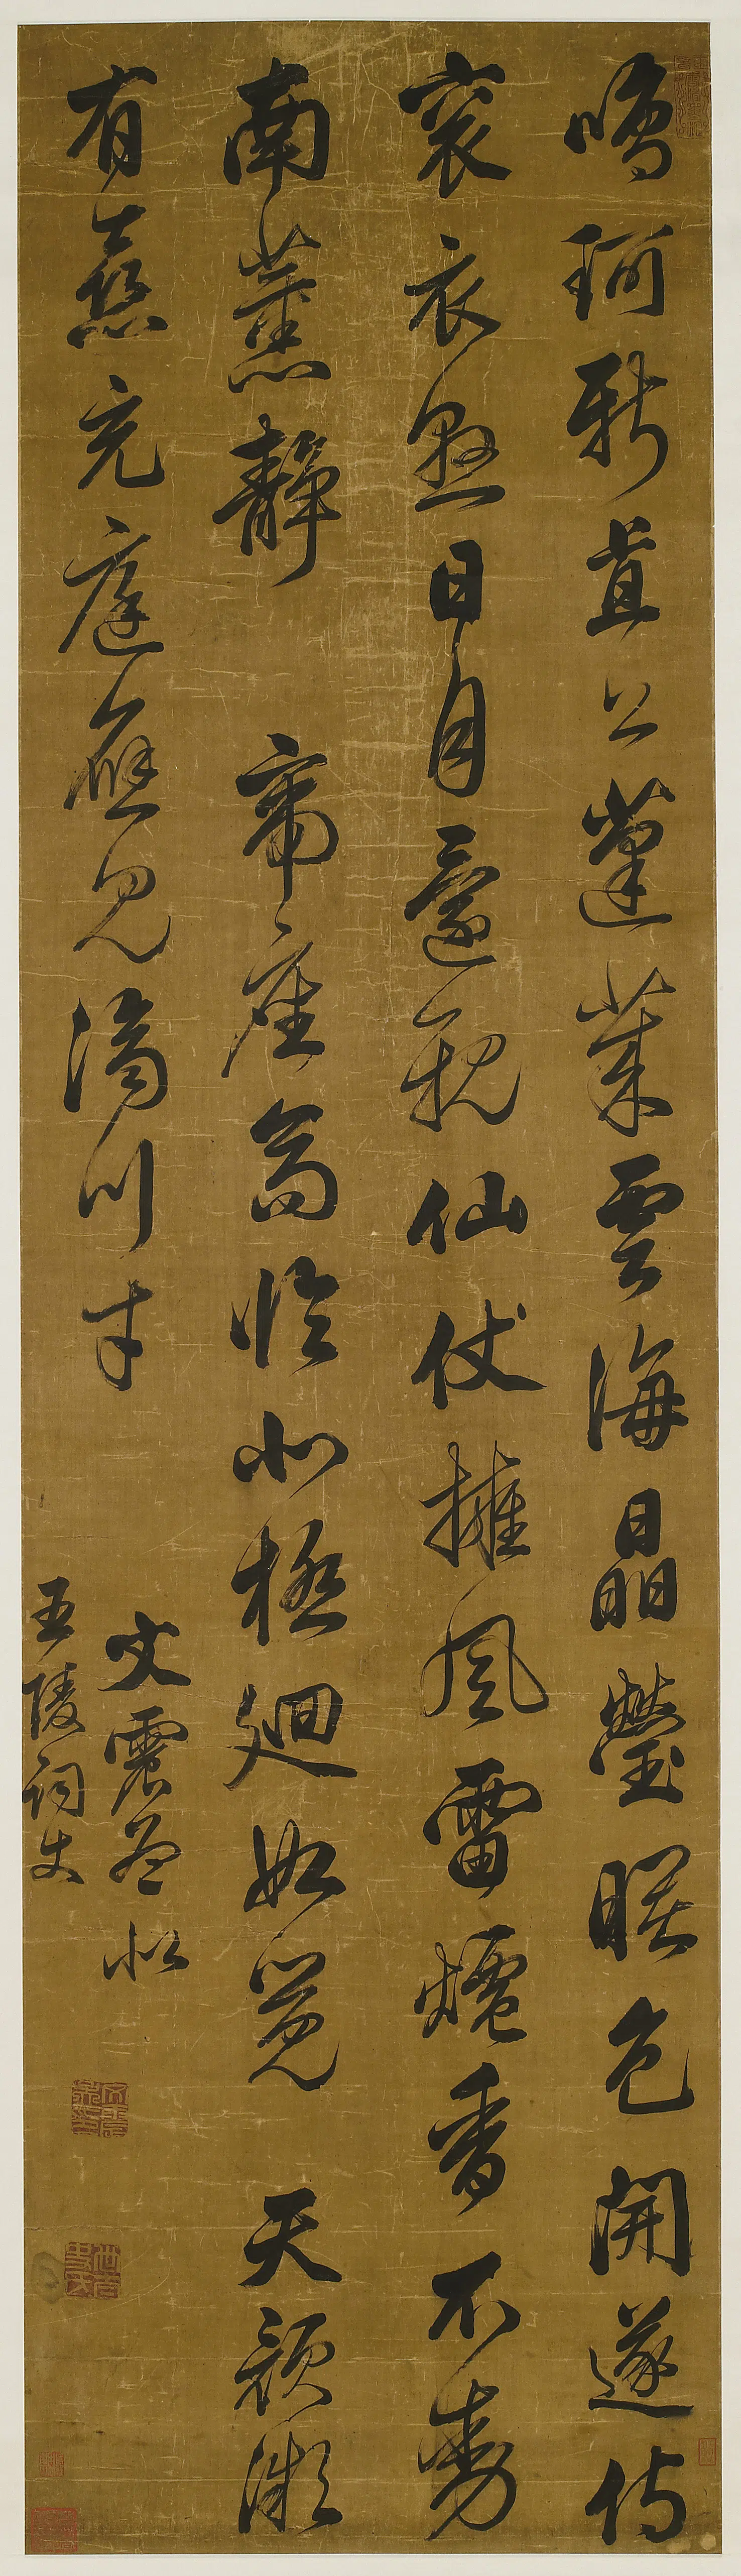 鳴珂新直上蓬萊雲海晶瑩曉色開遂侍
袞衣懸日月還親仙仗擁風雷爐香不動
南薰靜帝座高臨北極迴如覺天顏微
有喜充庭應見濟川才
文震孟似
玉陵詞丈